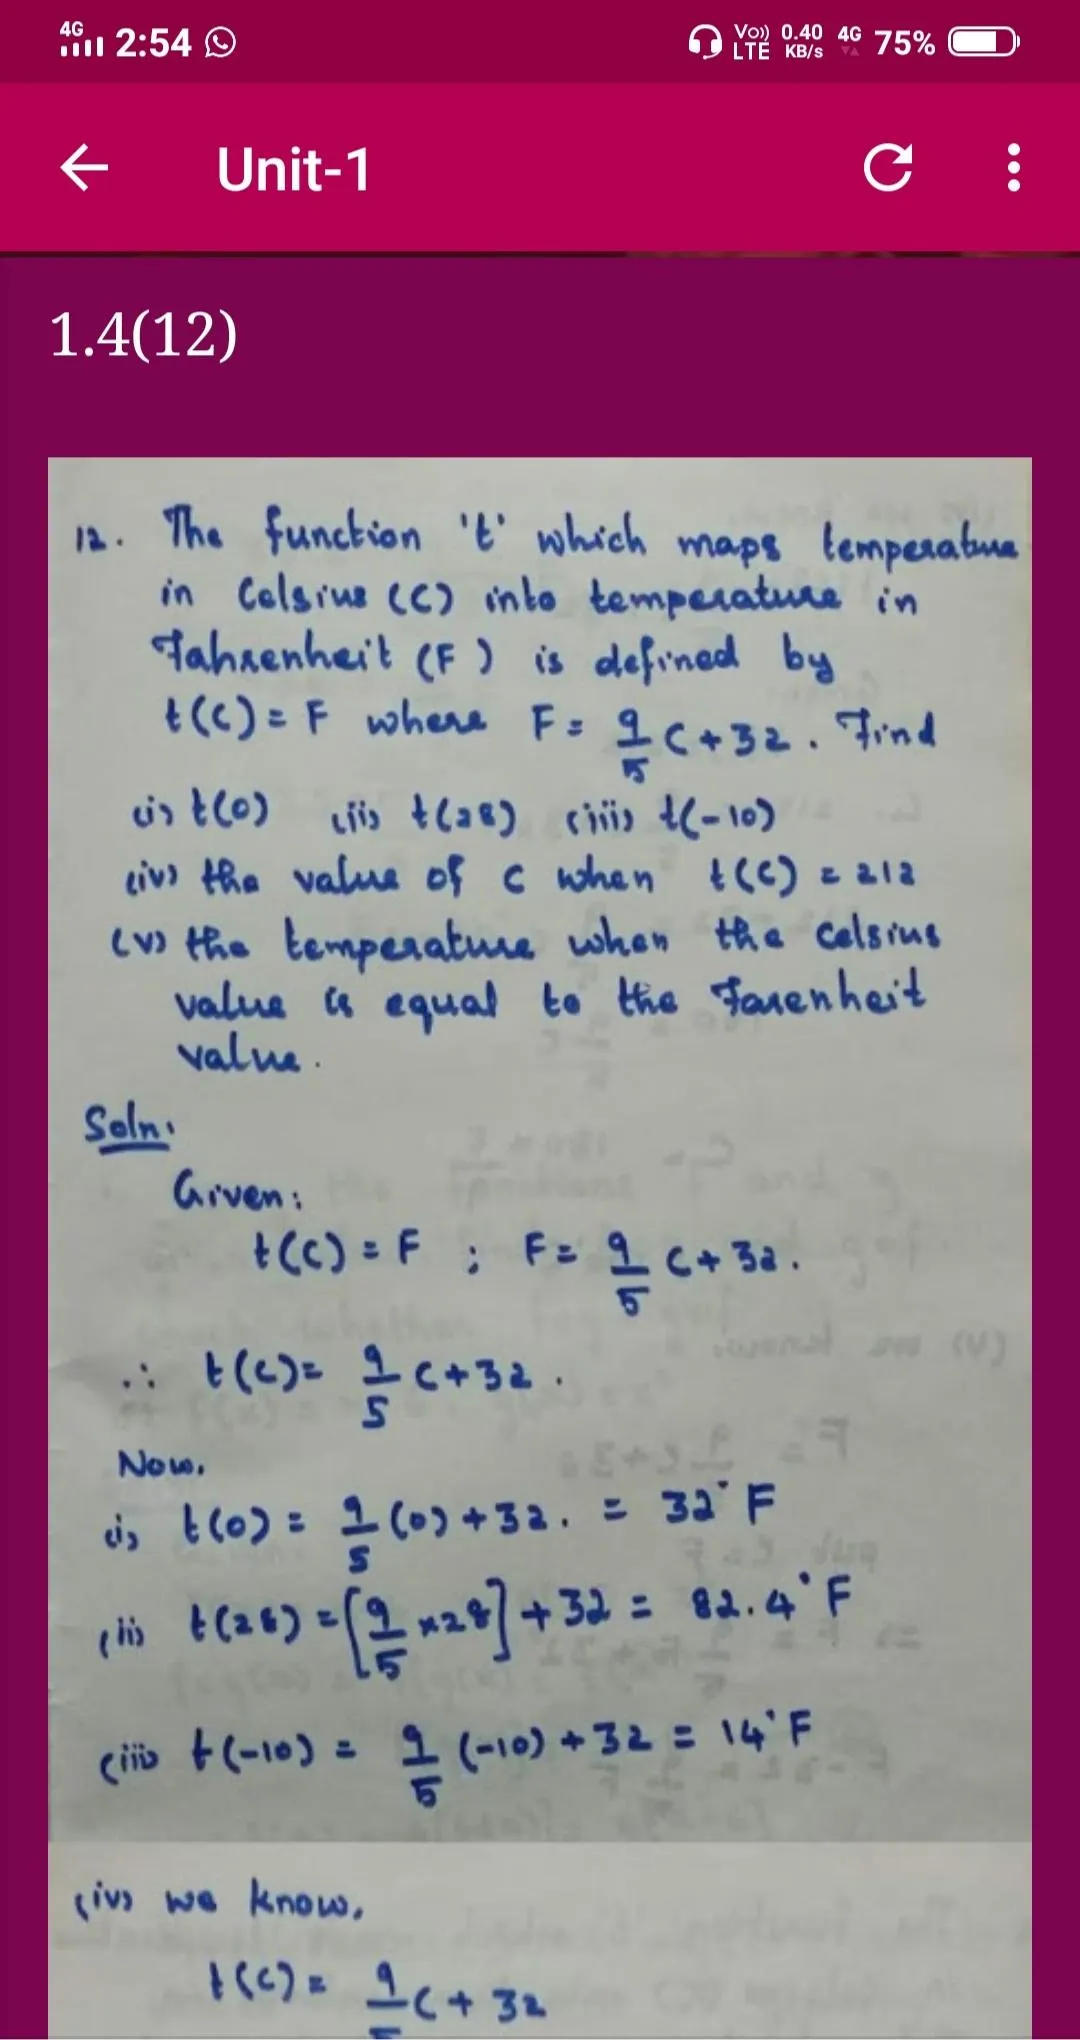 4G 2:54 Vo)) LTE 0.40 KB/s 4G 75%
Unit-1
1.4(12)
12. The function 't' which maps temperature
in Celsius (C) into temperature in
Fahrenheit (F) is defined by
t(C) = F where F = 9/5 C + 32. Find
(i) t(0) (ii) t(28) (iii) t(-10)
(iv) the value of C when t(C) = 212
(v) the temperature when the Celsius
value is equal to the Farenheit
value.
Soln.
Given:
t(C) = F ; F = 9/5 C + 32.
∴ t(C) = 9/5 C + 32.
Now,
(i) t(0) = 9/5 (0) + 32. = 32°F
(ii) t(28) = [9/5 × 28] + 32 = 82.4°F
(iii) t(-10) = 9/5 (-10) + 32 = 14°F
(iv) we know,
t(C) = 9/5 C + 32